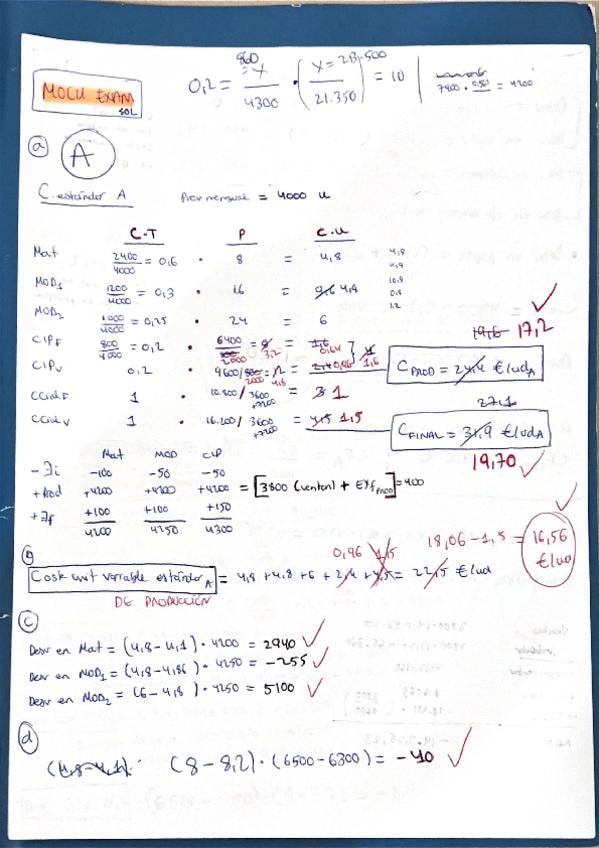 860
0,2 = X / 4300 · ( X = 213.500 / 21.350 ) = 10
7400 · = 4200
MOCU EXAM
SOL
a A
C. estándar A Prev mensual = 4000 u
C.T P C.U
Mat 2400/4000 = 0,6 · 8 = 4,8
MOD1 1200/4000 = 0,3 · 16 = 9,6 4,8
MOD2 1000/4000 = 0,25 · 24 = 6
CIPF 800/4000 = 0,2 · 6400/2000 = 8 3,2 = 1,6 0,64
CIPV 0,2 · 9600/800 2000 = 12 4,8 = 2,4 0,96 } 4 1,6
CComF 1 · 10.800 / 3600 +7200 = 3 1
CComV 1 · 16.200 / 3600 +7200 = 4,5 1,5
4,8
4,8
10,8
0,8
1,2
19,6 17,2
CPROD = 24,4 €/udA
27,1
CFINAL = 31,9 €/udA
19,70
Mat MOD CIP
- Ii -100 -50 -50
+ Prod +4200 +4200 +4200 = [3800 (ventas) + Exf PROD] = 400
+ If +100 +100 +150
4200 4250 4300
b 0,96 1,5 18,06 - 1,5 = 16,56 €/ud
Coste unit variable estándar A = 4,8 + 4,8 + 6 + 2,4 + 4,5 = 22,5 €/ud
DE PRODUCCIÓN
c
Desv en Mat = (4,8 - 4,1) · 4200 = 2940
Desv en MOD1 = (4,8 - 4,86) · 4250 = -255
Desv en MOD2 = (6 - 4,8) · 4250 = 5100
d
(4,8 - 4,1) · (8 - 8,2) · (6500 - 6300) = -40